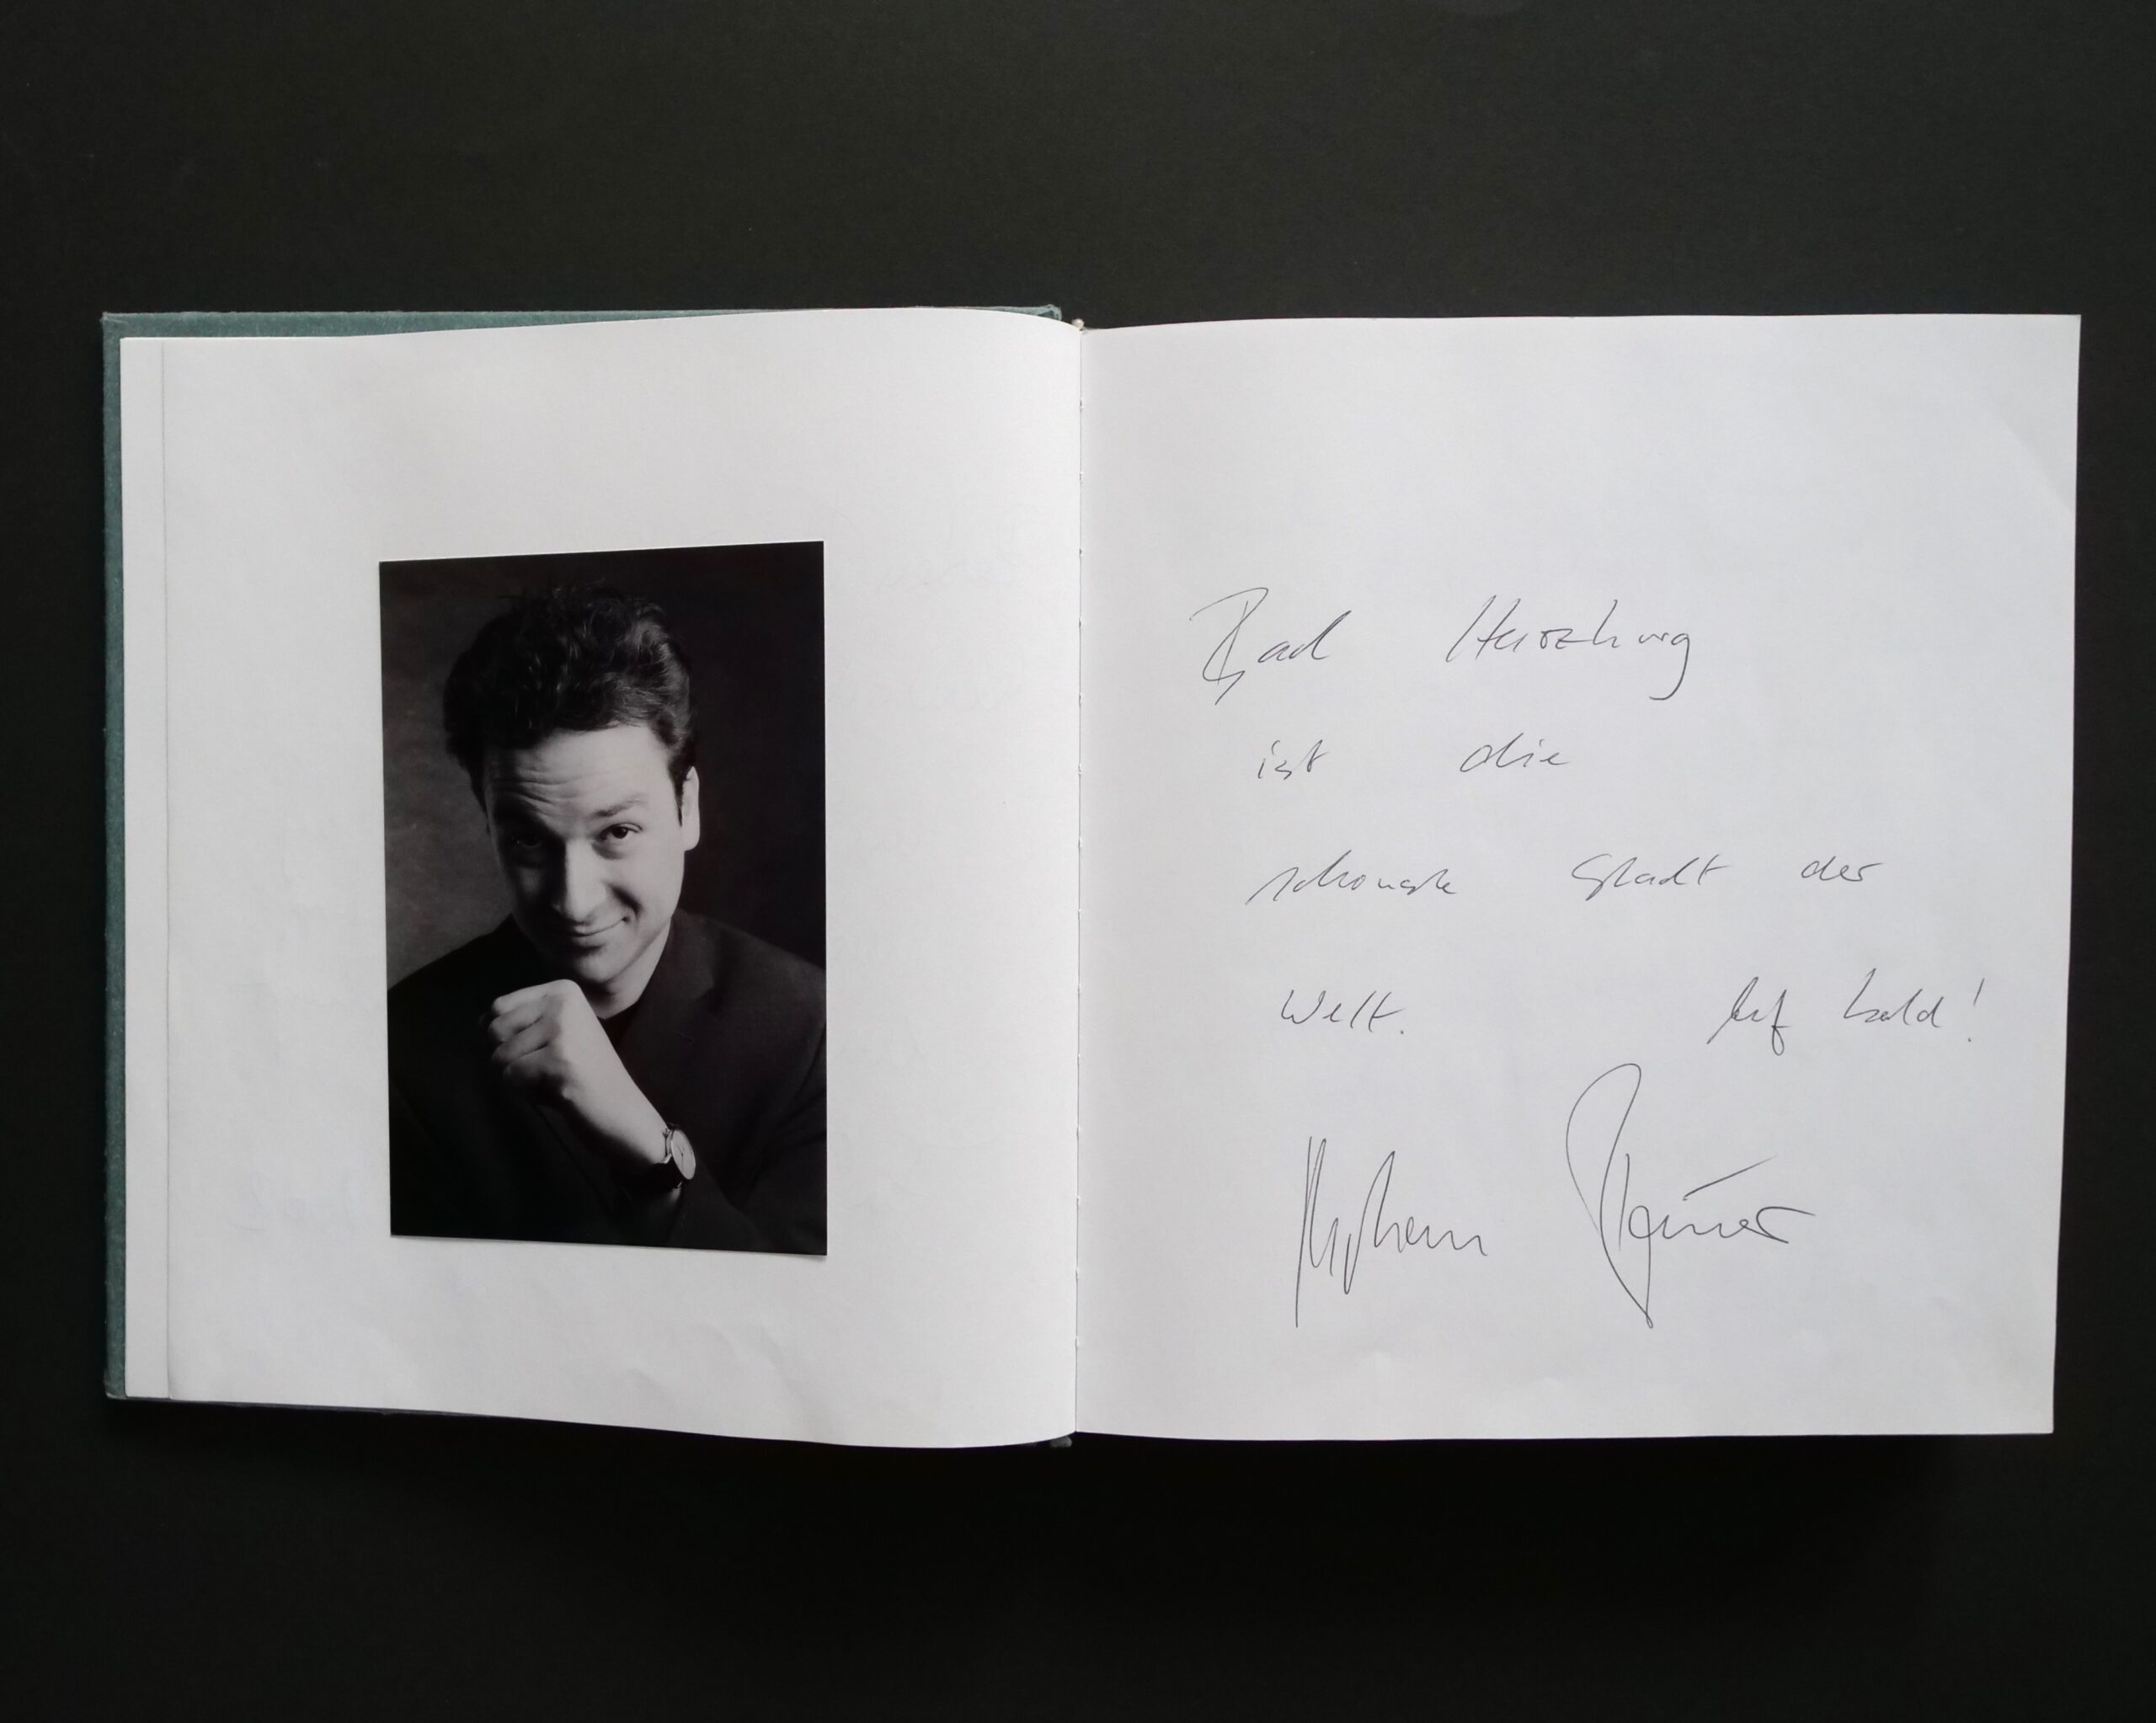 Bad Harzburg
ist die
schönste Stadt der
Welt. Auf bald!